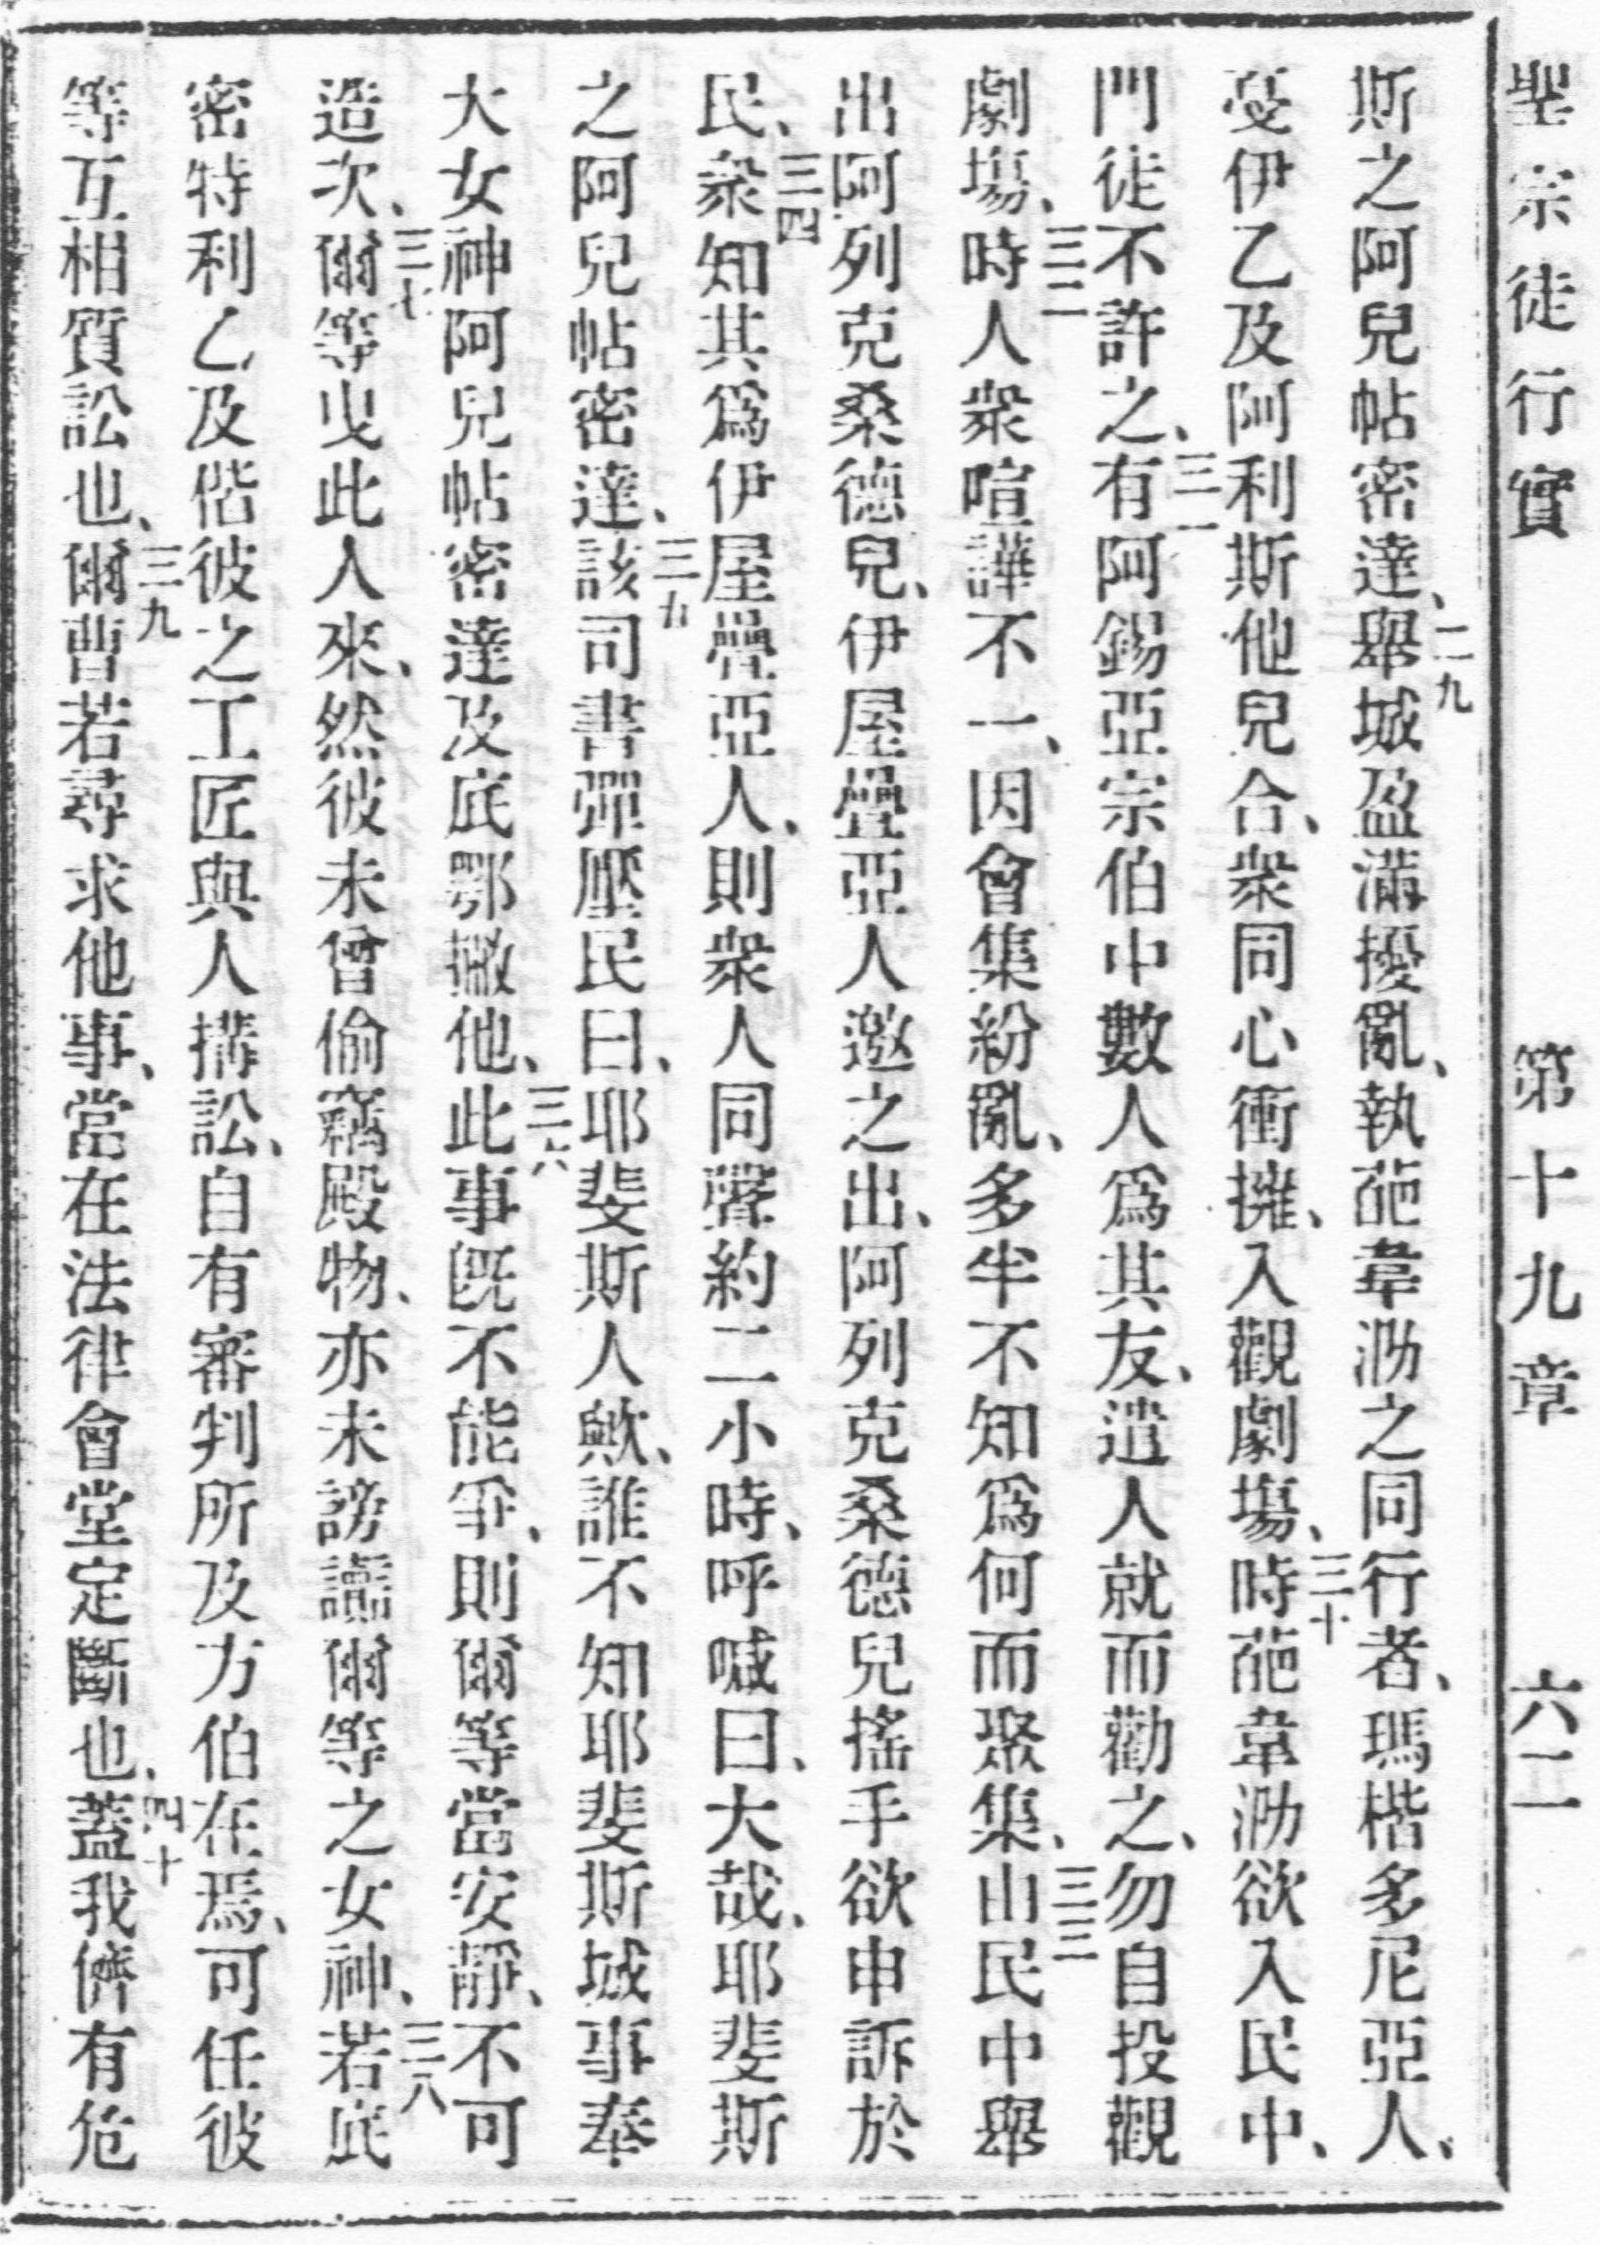 聖宗徒行實 第十九章 六二
斯之阿兒帖密達、二九舉城盈滿擾亂、執葩韋泐之同行者、瑪楷多尼亞人、
憂伊乙及阿利斯他兒合、衆同心衝擁、入觀劇塲、三十時葩韋泐欲入民中、
門徒不許之、三一有阿錫亞宗伯中數人爲其友、遣人就而勸之、勿自投觀
劇塲、三二時人衆喧譁不一、因會集紛亂、多半不知爲何而聚集、三三由民中舉
出阿列克桑德兒、伊屋疊亞人邀之出、阿列克桑德兒搖手欲申訴於
民、三四衆知其爲伊屋疊亞人、則衆人同聲約二小時、呼喊曰、大哉、耶斐斯
之阿兒帖密達、三五該司書彈壓民曰、耶斐斯人歟、誰不知耶斐斯城事奉
大女神阿兒帖密達及底鄂撇他、三六此事旣不能爭、則爾等當安靜、不可
造次、三七爾等曳此人來、然彼未曾偷竊殿物、亦未謗讟爾等之女神、三八若底
密特利乙及偕彼之工匠與人搆訟、自有審判所及方伯在焉、可任彼
等互相質訟也、三九爾曹若尋求他事、當在法律會堂定斷也、四十蓋我儕有危